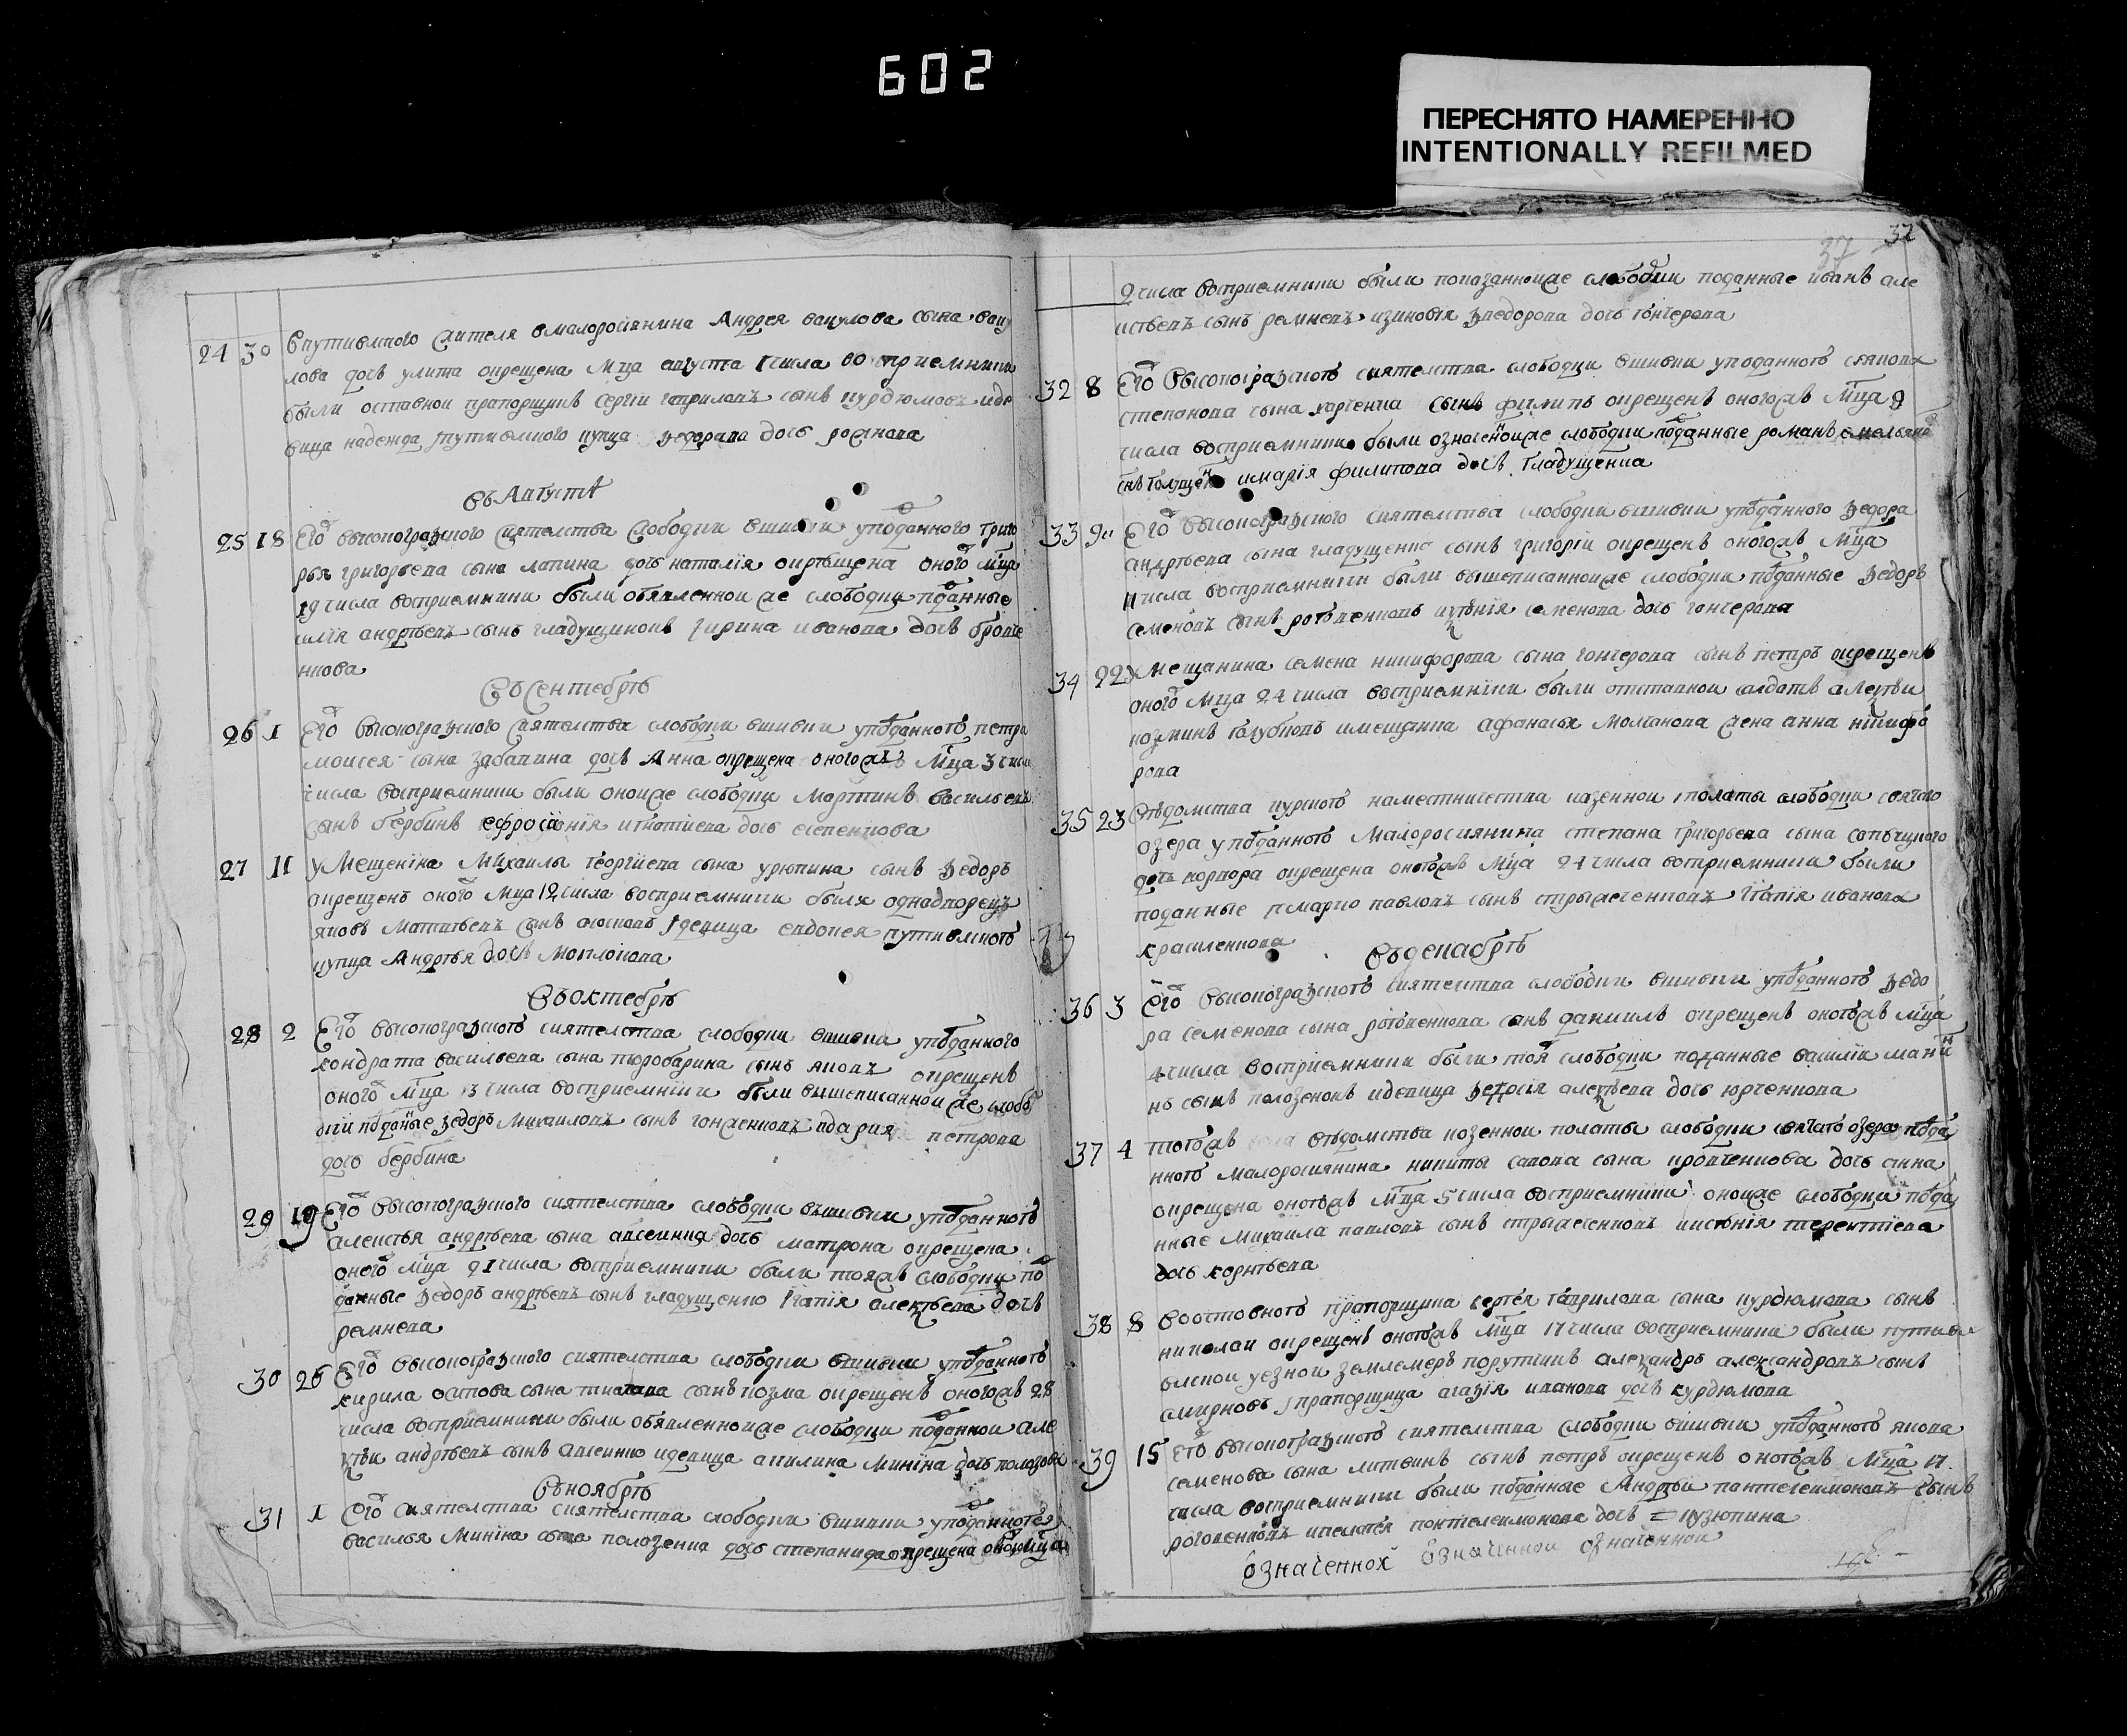 602
ПЕРЕСНЯТО НАМЕРЕННО
INTENTIONALLY REFILMED
24 30 Впутивлского жителя вмалоросіянина Андрея вакулова сына ваку
лова дочь улита окрещена мца августа 1 числа восприемники
были оставнои прапорщикъ сергіи гавриловъ сынъ курдюмовъ иде
вица надежда путивлского купца ѳедорова дочь
въ Августѣ
25 18 Его высокографского сиятелства слободки вшивки уподданного григо
рья григорьева сына лапина дочь наталія окрѣщена оного мца
19 числа восприемники были обявленнои же слободки пданные
илія андрѣевъ сынъ гладущинковъ ирина иванова дочь
нкова
Въ сентебрѣ
26 1 Его высокографского сиятелства слободки вшивки уподданного петра
моисея сына забапина дочь Анна окрещена оногожъ мца 3 числ
числа восприемники были оноиже слободки Мартинъ васильевъ
сынъ бербинъ ефросінія игнотиева дочь есепенкова
27 11 у Мещеніна Михаилы георгіева сына урюпина сынъ ѳедоръ
окрещенъ оного мца 12 числа восприемники были однадворецъ
яковъ Матвѣевъ сынъ девица евдокея путивлского
купца Андрѣя дочь Моклокова
Въ октебрѣ
28 2 Его высокографского сиятелства слободки вшивки уподданного
кондрата васильева сына сынъ яковъ окрещенъ
оного мца 3 числа восприемники были вышеписаннои же слобо
дки пбданые ѳедоръ Михаиловъ сынъ гонженковъ идария петрова
дочь бербина
29 19 Его высокографского сиятелства слободки вшивки уподданного
алексѣя андрѣева сына авсеинка дочь матрона окрещена
оного мца 21 числа восприемники были тояжъ слободки по
данные ѳедоръ андрѣевъ сынъ гладущенко агапія алексѣева дочь
ремнева
30 26 Его высокографского сиятелства слободки вшивки уподданного
кирила осипова сына сынъ козма окрещенъ оногожъ 28
числа восприемники были обявленноиже слободки подданнои але
ксѣи андрѣевъ сынъ авсеинко идевица акилина Миніна дочь
Въ ноябрѣ
31 1 Его сиятелства сиятелства слободки вшивки уподданного
василья Миніна сына полазенка дочь степанида окрещена оногожъ мца
37 37
9 числа восприемники были показанноиже слободки поданные иванъ але
ксѣевъ сынъ ремневъ изиновія ѳедорова дочь гончерова
32 8 Его высокографского сиятелства слободки вшивки уподанного
степанова сына харченка сынъ филипъ окрещенъ оногожъ мца 9
числа восприемники были означенноиже слободки подданные романъ
снъ имарія филипова дочь гладущенка
33 9 Его высокографского сиятелства слободки вшивки уподданного ѳедора
андрѣева сына гладущенка сынъ григоріи окрещенъ оногожъ мца
11 числа восприемники были вышеписанноиже слободки пбданные ѳедоръ
семеновъ сынъ роговенковъ семенова дочь гончерова
34 22 умещанина семена никифорова сына гончерова сынъ петръ окрещенъ
оного мца 24 числа восприемники были отставнои салдатъ алексѣи
козминъ голубковъ имещанка афанасья Молчанова жена анна никифо
рова
35 23 Вѣдомства курского наместничества казеннои полаты слободки святого
озера уподданного Малоросиянина степана григорьева сына
дочь окрещена оногожъ мца 24 числа восприемники были
поданные павловъ сынъ агапія иванова
крамленкова
Въ декабрѣ
36 3 Его высокографского сиятелства слободки вшивки уподданного ѳедо
ра семенова сына роговенкова снъ даниилъ окрещенъ оногожъ мца
4 числа восприемники были тоя слободки поданные василіи мани
нъ сынъ полозенокъ идевица алексѣева дочь юрченкова
37 4 тогожъ вѣдомства козеннои полаты слободки святого озера пода
нного малоросиянина никиты савова сына кровченкова дочь анна
окрещена оногожъ мца 5 числа восприемники оноиже слободки пода
нные Михаила павловъ сынъ терентіева
дочь корнѣева
38 8 Воставного прапорщика сергѣя гаврилова сына курдюмова сынъ
николаи окрещенъ оногожъ мца 17 числа восприемники были путив
влскои уезнои землемеръ порутчикъ александръ александровъ сынъ
смирновъ прапорщица агафія иванова дочь курдюмова
39 15 Его высокографского сиятелства слободки вшивки уподданного якова
семенова сына литвинъ сынъ петръ окрещенъ оногожъ мца 17
числа восприемники были пбданные Андрѣи пантелеимоновъ сынъ
роговенковъ ипелагея понтелеимонова дочь = кузюпина
означенной означенной означенной